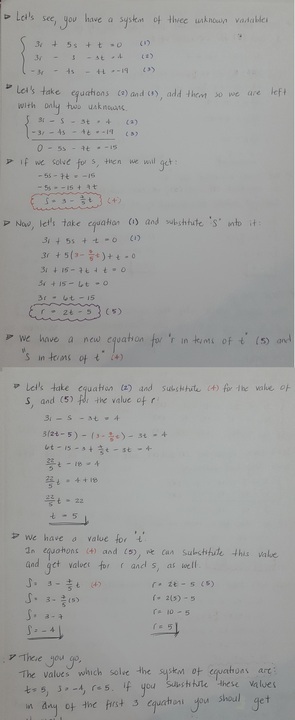 Let's see, you have a system of three unknown variables
3r + 5s + t = 0 (1)
3r - s - 3t = 4 (2)
-3r - 4s - 4t = -19 (3)
Let's take equations (2) and (3), add them so we are left
with only two unknowns
3r - s - 3t = 4 (2)
-3r - 4s - 4t = -19 (3)
0 - 5s - 7t = -15
if we solve for s, then we will get:
-5s - 7t = -15
-5s = -15 + 7t
s = 3 - 7/5 t (4)
Now, let's take equation (1) and substitute 's' into it:
3r + 5s + t = 0 (1)
3r + 5(3 - 7/5 t) + t = 0
3r + 15 - 7t + t = 0
3r + 15 - 6t = 0
3r = 6t - 15
r = 2t - 5 (5)
We have a new equation for "r in terms of t" (5) and
"s in terms of t" (4)
Let's take equation (2) and substitute (4) for the value of
s, and (5) for the value of r:
3r - s - 3t = 4
3(2t - 5) - (3 - 7/5 t) - 3t = 4
6t - 15 - 3 + 7/5 t - 3t = 4
22/5 t - 18 = 4
22/5 t = 4 + 18
22/5 t = 22
t = 5
We have a value for 't'.
In equations (4) and (5), we can substitute this value
and get values for r and s, as well.
s = 3 - 7/5 t (4) r = 2t - 5 (5)
s = 3 - 7/5 (5) r = 2(5) - 5
s = 3 - 7 r = 10 - 5
s = -4 r = 5
There you go,
The values which solve the system of equations are:
t = 5, s = -4, r = 5. if you substitute these values
in any of the first 3 equations you should get